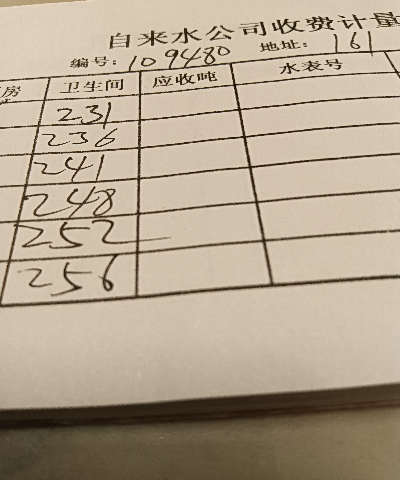 自来水公司收费计量
编号: 109480 地址: 161
房 卫生间 应收吨 水表号
231
236
241
248
252
256